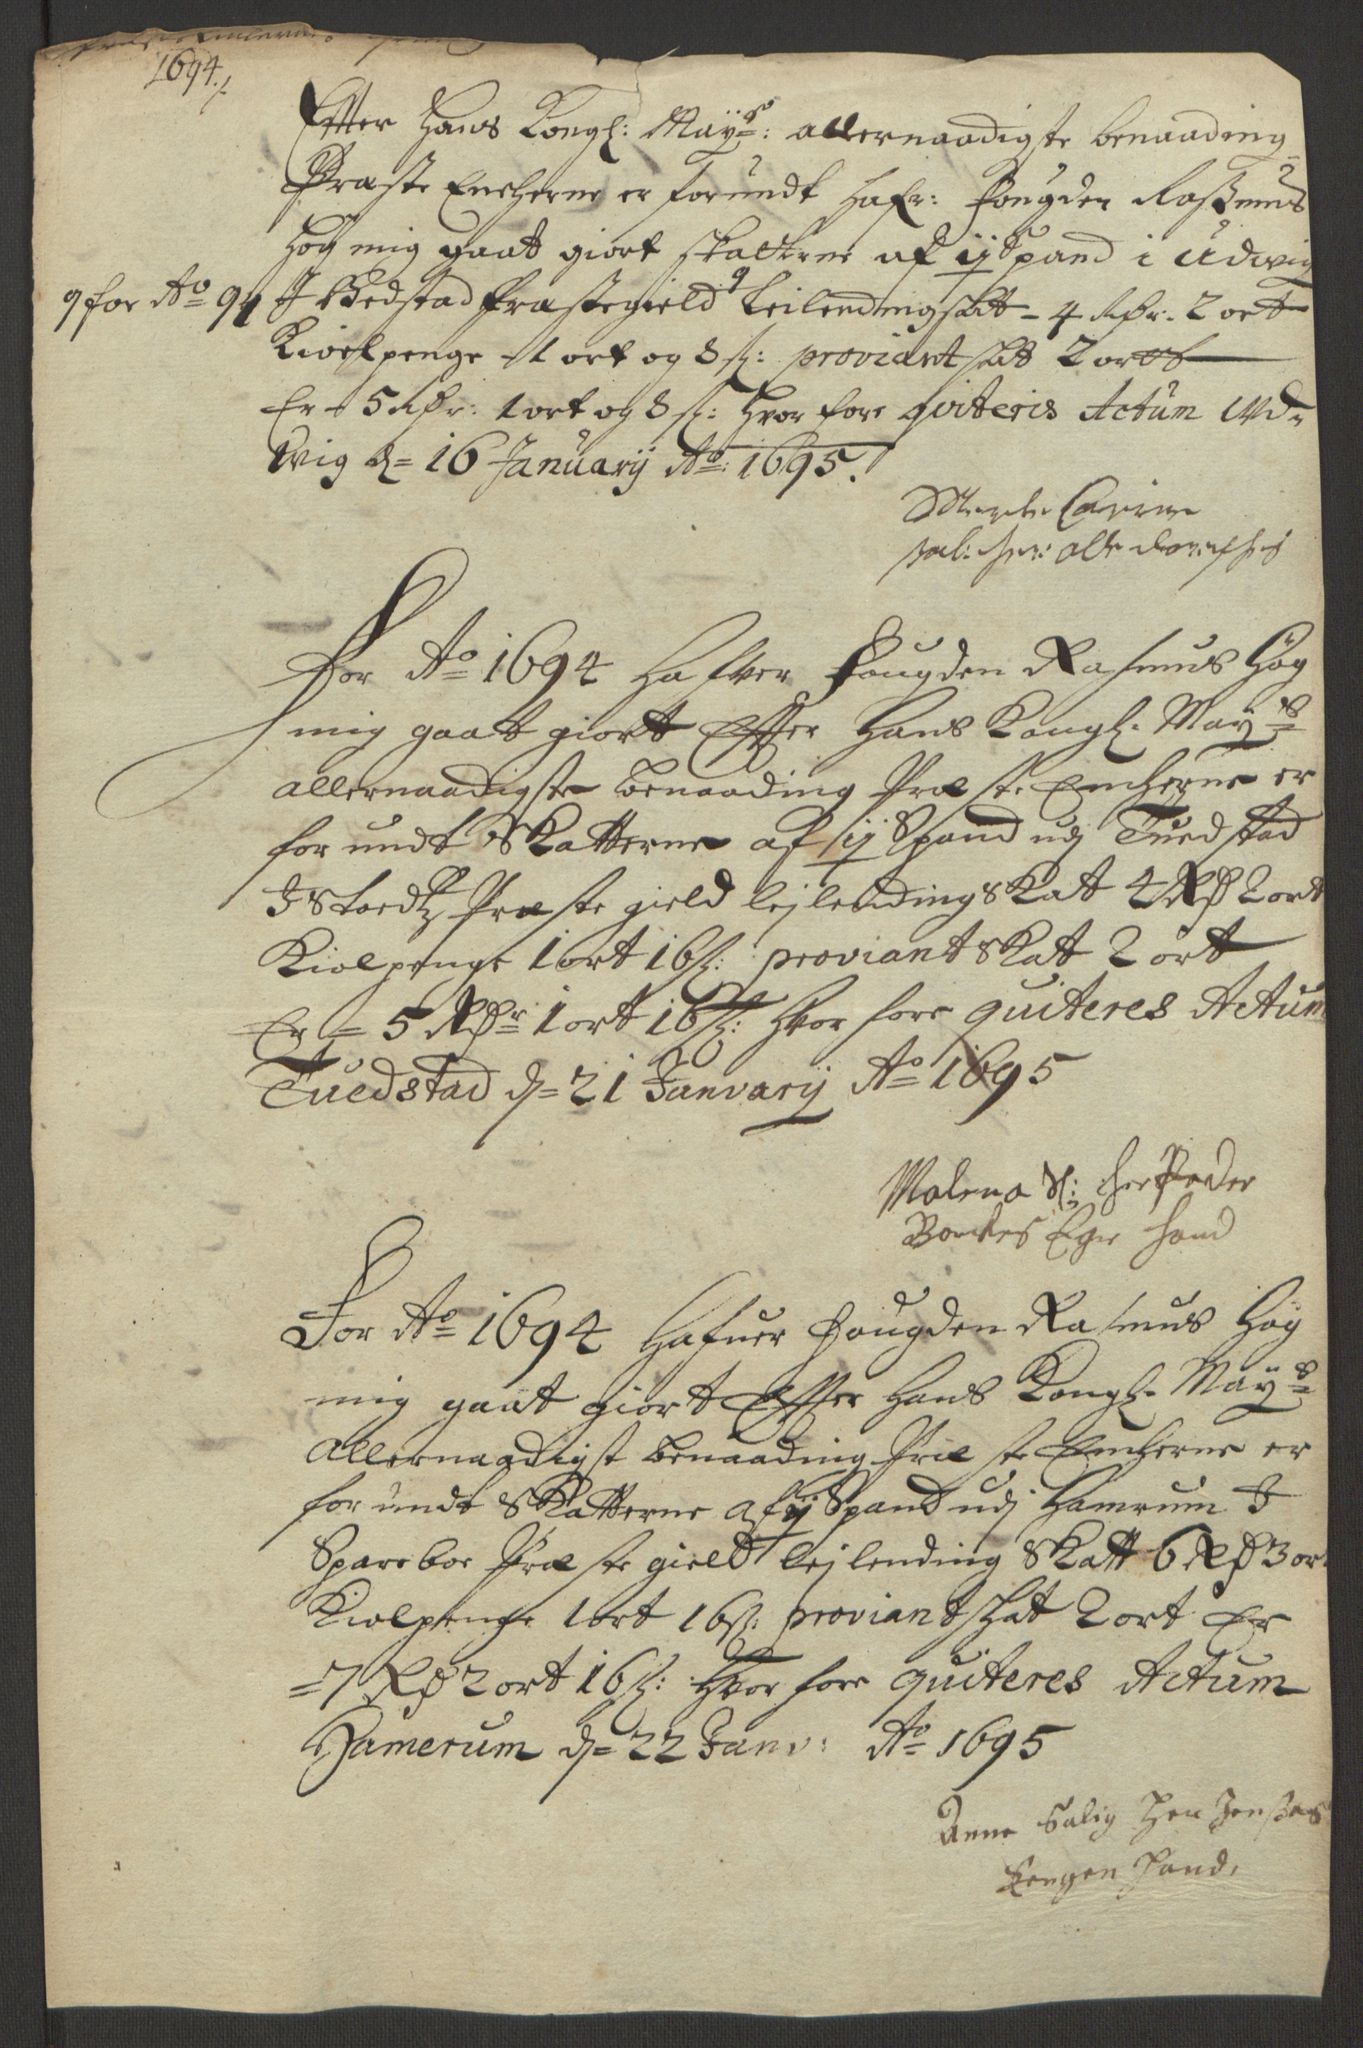 1694./.
Effter Hans Kongl: Maÿts: allernaadigste benaading
Præste Encherne er forundt hafr: Fougden Rassmus
Høg mig gaat giort skatterne af ij Spand i Udwig
9 for Ao 94 I Bedstad Præstegield 9 Leilendings skt - 4 Rdr. 2 ort
Kiolpenge 1 ort og 8 s: proviant skat 2 ort
Er - 5 Rdr: 1 ort og 8 s: Hvor fore qviteris Actum Ud=
wig d= 16 Januarij Ao: 1695.
Carine
sal: her: Olle
For Ao 1694 Hafver Fougden Rasmus Høg
mig gaat giort Effter Hans Kongl. Maÿts
allernaadigste benaading Præste Encherne er
forundt Skatterne af ij Spand udj Tuedstad
I Stoedtz Præste gield lejlending Skatt 4 Rd 2 ort
Kiolpenge 1 ort 16 s: proviant Skatt 2 ort
Er = 5 Rdr 1 ort 16 s: Hvor fore quiteres Actum
Tuedstad d= 21 Januarij Ao 1695
Malena Sl: her Peder
Egen Haand
For Ao 1694 Hafuer Fougden Rasmus Høg
mig gaat giort Effter Hans Kongl. Maÿts
Allernaadigst benaading Præste Encherne er
forundt Skatterne af ij Spand udj Hamrum I
Spareboe Præste gield lejlending Skatt 6 Rd 3 ort
Kiolpenge 1 ort 16 s: proviant skat 2 ort Er
= 7 Rd 2 ort 16 s: Hvor fore quiteres Actum
Hamerum d= 22 Janv: Ao 1695
Anne Salig Her Jenssøns
Eengen Hand.